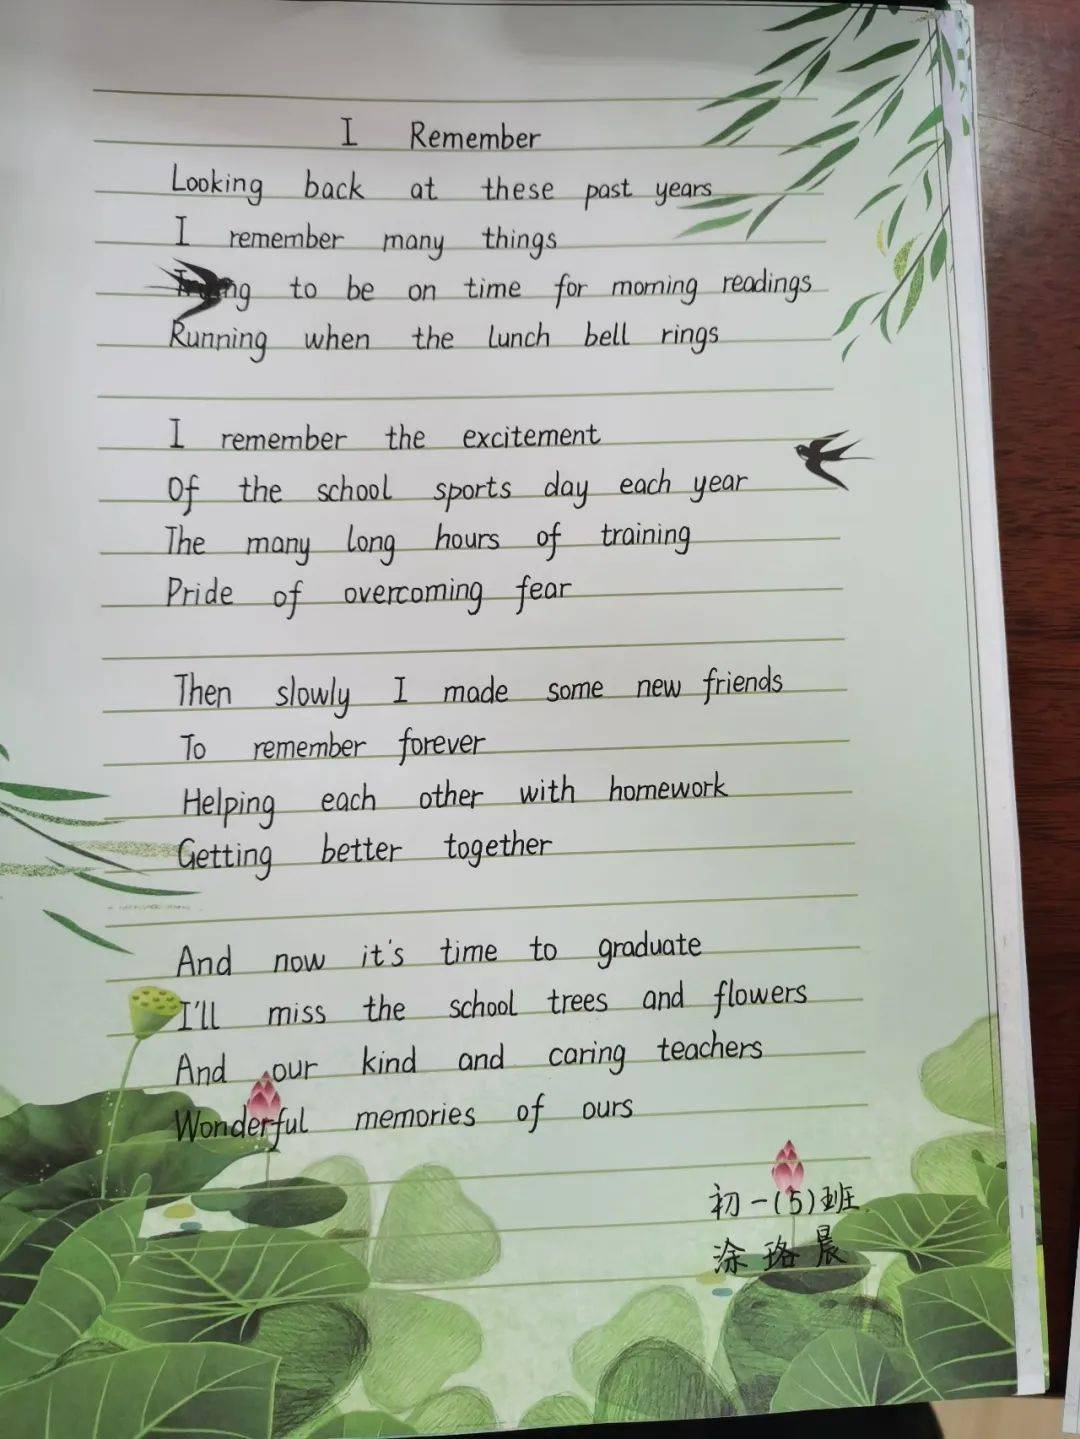 I Remember
Looking back at these past years
I remember many things
Trying to be on time for morning readings
Running when the lunch bell rings
I remember the excitement
Of the school sports day each year
The many long hours of training
Pride of overcoming fear
Then slowly I made some new friends
To remember forever
Helping each other with homework
Getting better together
And now it's time to graduate
I'll miss the school trees and flowers
And our kind and caring teachers
Wonderful memories of ours
初一(5)班
涂珞晨